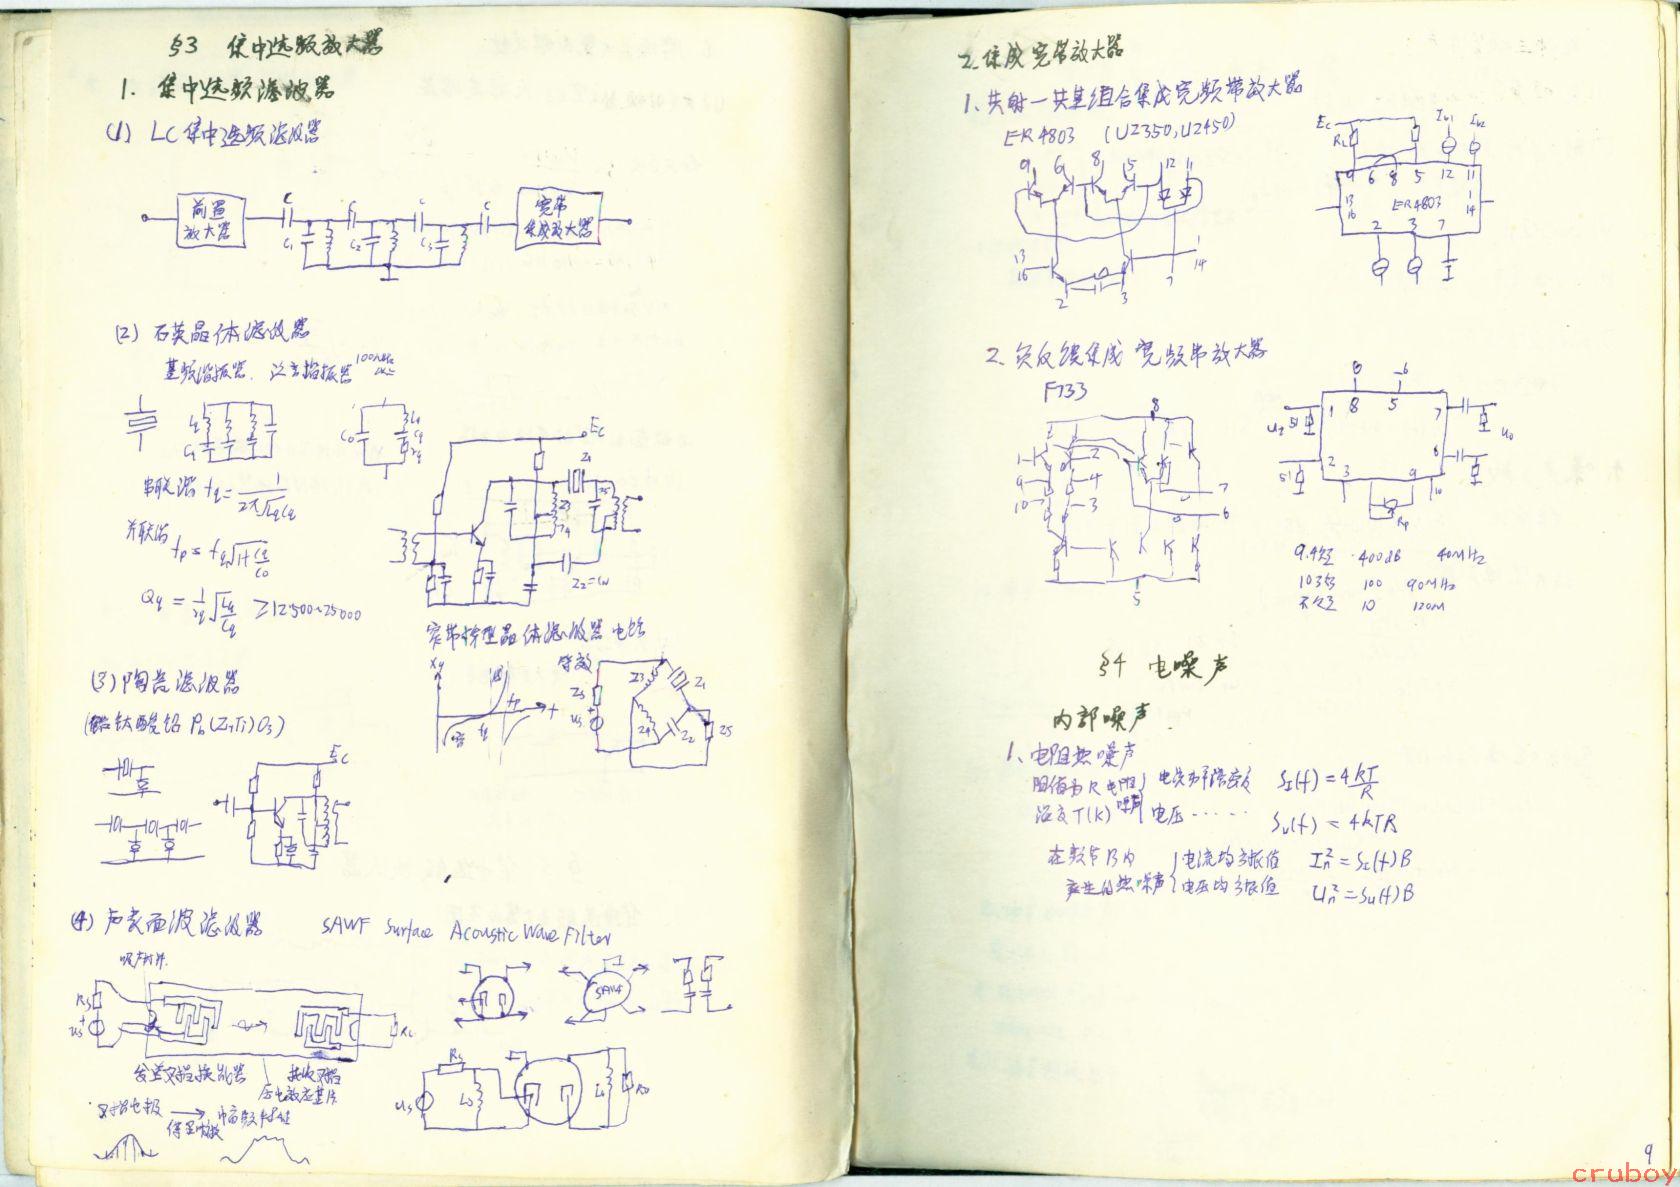 §3 集中选频放大器
1. 集中选频滤波器
(1) LC集中选频滤波器
前置
放大器
C C C C
C1 C2 C3
宽带
集成放大器
(2) 石英晶体滤波器
基频谐振器. 泛音谐振器 100MHz
Lq
Cq
C0
Lq
Cq
rq
串联谐 fq = 1/2π√LqCq
并联谐 fp = fq√1+Cq/C0
Qq = 1/rq √Lq/Cq ≥12500~25000
Ec
Z1
Z3
Z4
Z5
Z2=CN
窄带桥型晶体滤波器电路
Xq
fq
fp
f
等效
Zs
Us
Z3
Z1
Z4
Z2
Z5
(3) 陶瓷滤波器
钛酸铅 Pb(ZrTi)O3)
Ec
(4) 声表面波滤波器 SAWF Surface Acoustic Wave Filter
吸声材料
Rs
Us
RL
发送叉指换能器
接收叉指
压电效应基片
叉指电极
得到
幅频特性
SAWF
Rs
Us
L0
L1
R0
2. 集成宽带放大器
1. 共射一共基组合集成宽频带放大器
ER4803 (UZ350, UZ450)
9 6 8 5 12 11
13
16
1
14
2 3 7
Ec
RL
Ib1 Ib2
9 6 8 5 12 11
13
16
ER4803
1
14
2 3 7
2. 负反馈集成宽频带放大器
F733
8
1
9
10
2
4
3
7
6
5
8 5
1
2
3
7
6
9
10
51
51
U0
Rp
9.4短 400dB 40MHz
10.3短 100 90MHz
不短 10 120M
§4 电噪声
内部噪声
1. 电阻热噪声
阻值为R电阻
温度T(K) 噪声
电流功率谱密度 SI(f) = 4kT/R
电压······ SU(f) = 4kTR
在频带B内
产生的热噪声
电流均方根值 In² = SI(f)B
电压均方根值 Un² = SU(f)B
9
cruboy